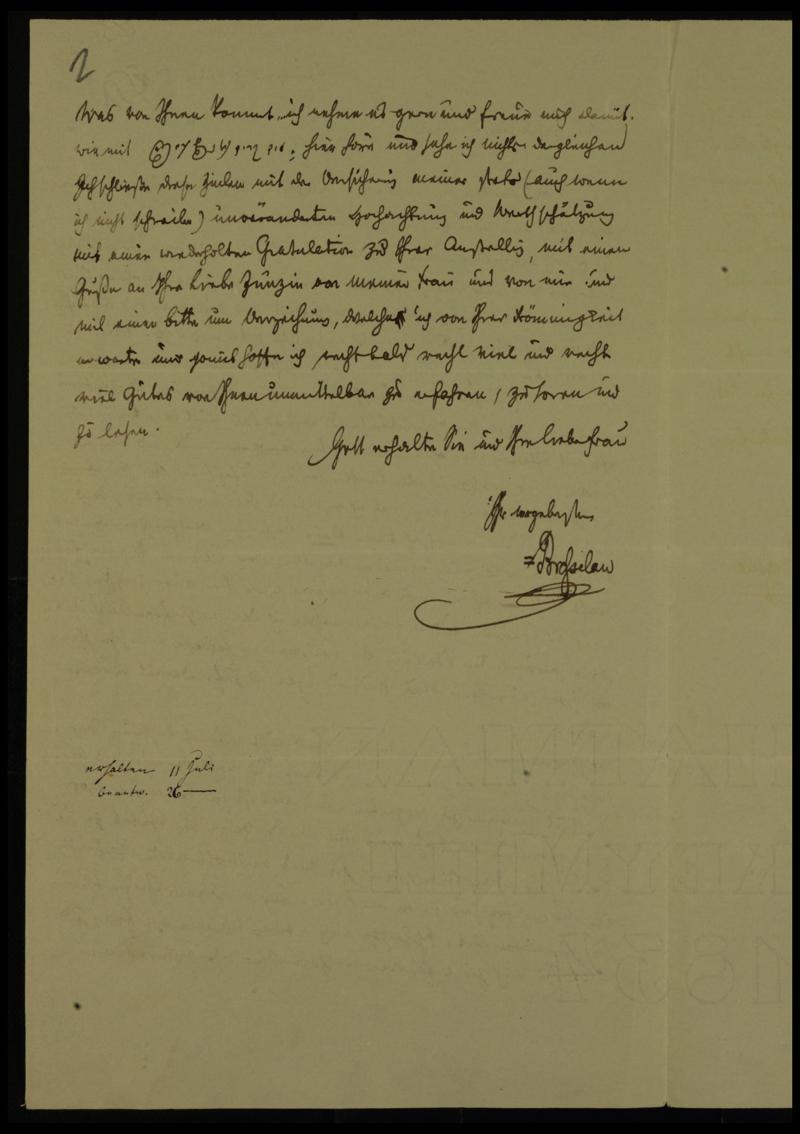 2
Was von Ihnen kommt, ich nehme es gern und freue mich damit.
wie mit ; hier höre und sehe ich nichts dergleichen
Ich schließe diese Zeilen mit der Versicherung meiner stets (auch wenn
ich nicht schreibe) unveränderten Hochachtung und Werthschätzung
mit einer wiederholten Gratulation zu Ihrer Anstellung, mit einem
Gruße an Ihre Liebe Zunzin von meiner Frau und von mir und
mit einer bitte um Verzeihung, welche ich von Ihrer
erwarte und hoffe ich recht bald recht viel und recht
viel Gutes von Ihnen unmittelbar zu erfahren, zu hören und
zu lesen.
Gott erhalte Sie und Ihre liebe Frau
Ihr ergebenster
erhalten 11 Juli
beantw. 26 —